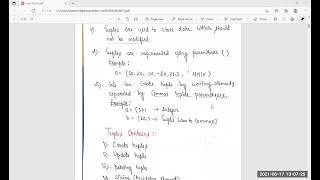 v). Tuples are used to store data which should
not be modified.
vi). Tuples are represented using parenthesis ( ).
Example:
a = (10, 20, 30, -50, 21.3, "NMIX")
vii). We can create tuple by writing elements
separated by commas inside parentheses.
Example:
a = (10) → Integer
b = (10,) → Tuple
Tuples Contains:-
i). Create tuples
ii). Update tuples
iii). Deleting tuples
2021-06-17 13:07:25